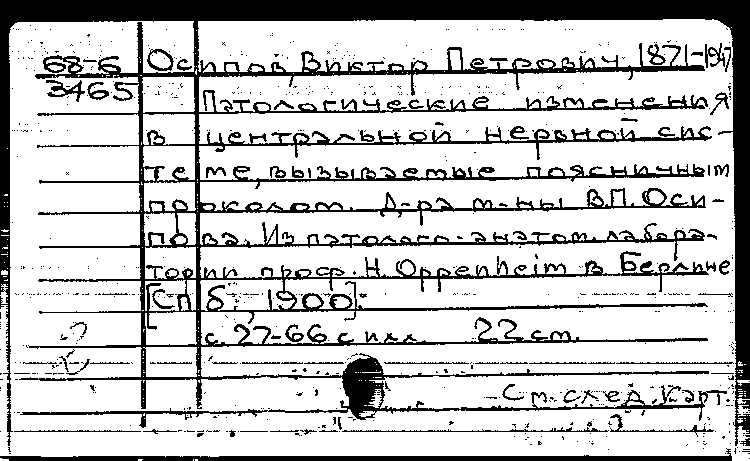 68-6 Осипов, Виктор Петрович, 1871-1947
3465 Патологические изменения
в центральной нервной сис-
теме, вызываемые поясничным
проколом. Д-ра м-ны В.П. Оси-
пова. Из патолого-анатом. лабора-
тории проф. H. Oppenheim в Берлине
[Спб., 1900].
с. 27-66 с илл. 22 см.
См. след. карт.